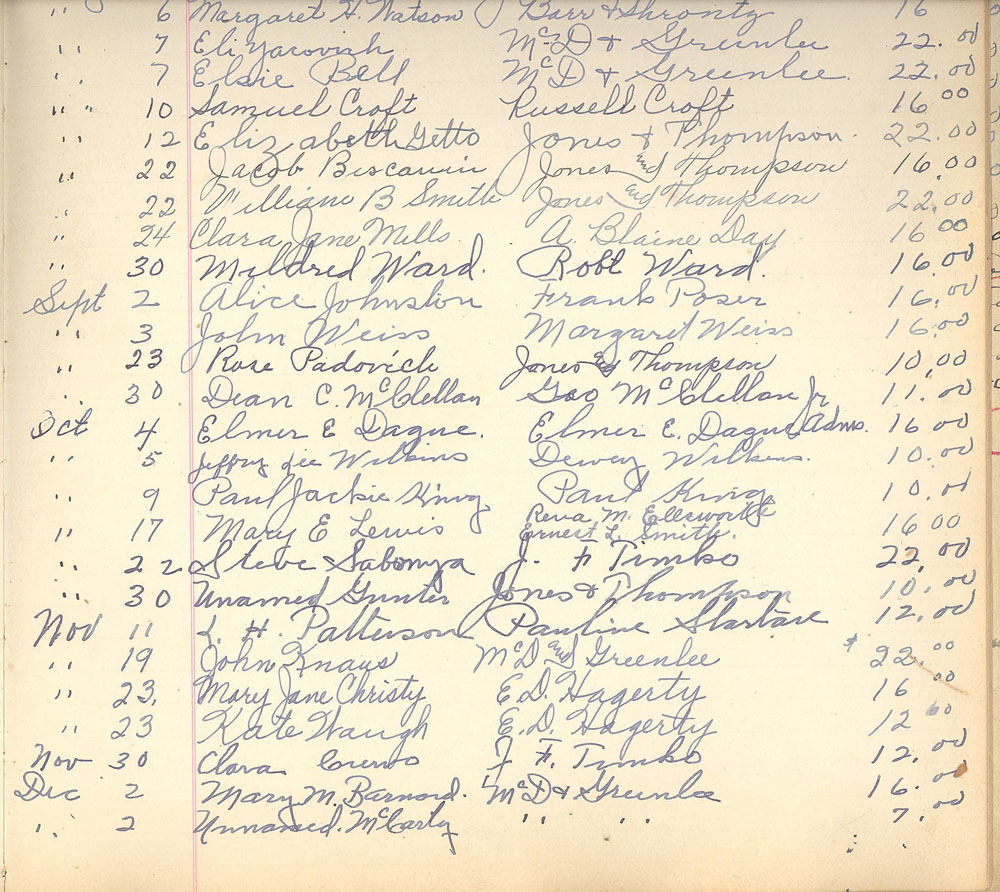 " 6 Margaret H. Watson Barr & Shrontz 16
" 7 Eli Yacovich McD & Greenlee 22.00
" 7 Elsie Bell McD & Greenlee. 22.00
" 10 Samuel Croft Russell Croft 16 00
" 12 Elizabeth Getto Jones & Thompson. 22.00
" 22 Jacob Jones and Thompson 16.00
" 22 William B Smith Jones and Thompson 22.00
" 24 Clara Jane Mills A. Blaine Day 16 00
" 30 Mildred Ward. Robt Ward. 16.00
Sept 2 Alice Johnston Frank Poser 16.00
" 3 John Weiss Margaret Weiss 16.00
" 23 Rose Padovich Jones & Thompson 10.00
" 30 Dean C. McClellan Geo McClellan Jr 11.00
Oct 4 Elmer E Dague. Elmer E. Dague Adms. 16 00
" 5 Jeffry Lee Wilkins Dewey Wilkins. 10.00
" 9 Paul Jackie King Paul King 10.00
Reva M. Ellsworth
" 17 Mary E Lewis Ernest L. Smith. 16 00
" 22 Steve Sabonya J. F Timko 22.00
" 30 Unamed Gunter Jones & Thompson 10.00
Nov 11 L. H. Patterson Pauline 12.00
" 19 John Knaus McD and Greenlee 22.00
" 23. Mary Jane Christy E.D. Hagerty 16 00
" 23 Kate Waugh E.D. Hagerty 12 00
Nov 30 Clara J. F. Timko 12.00
Dec 2 Mary M. Barnard. McD & Greenlee 16.00
" 2 Unnamed. McCarty " " 7.00